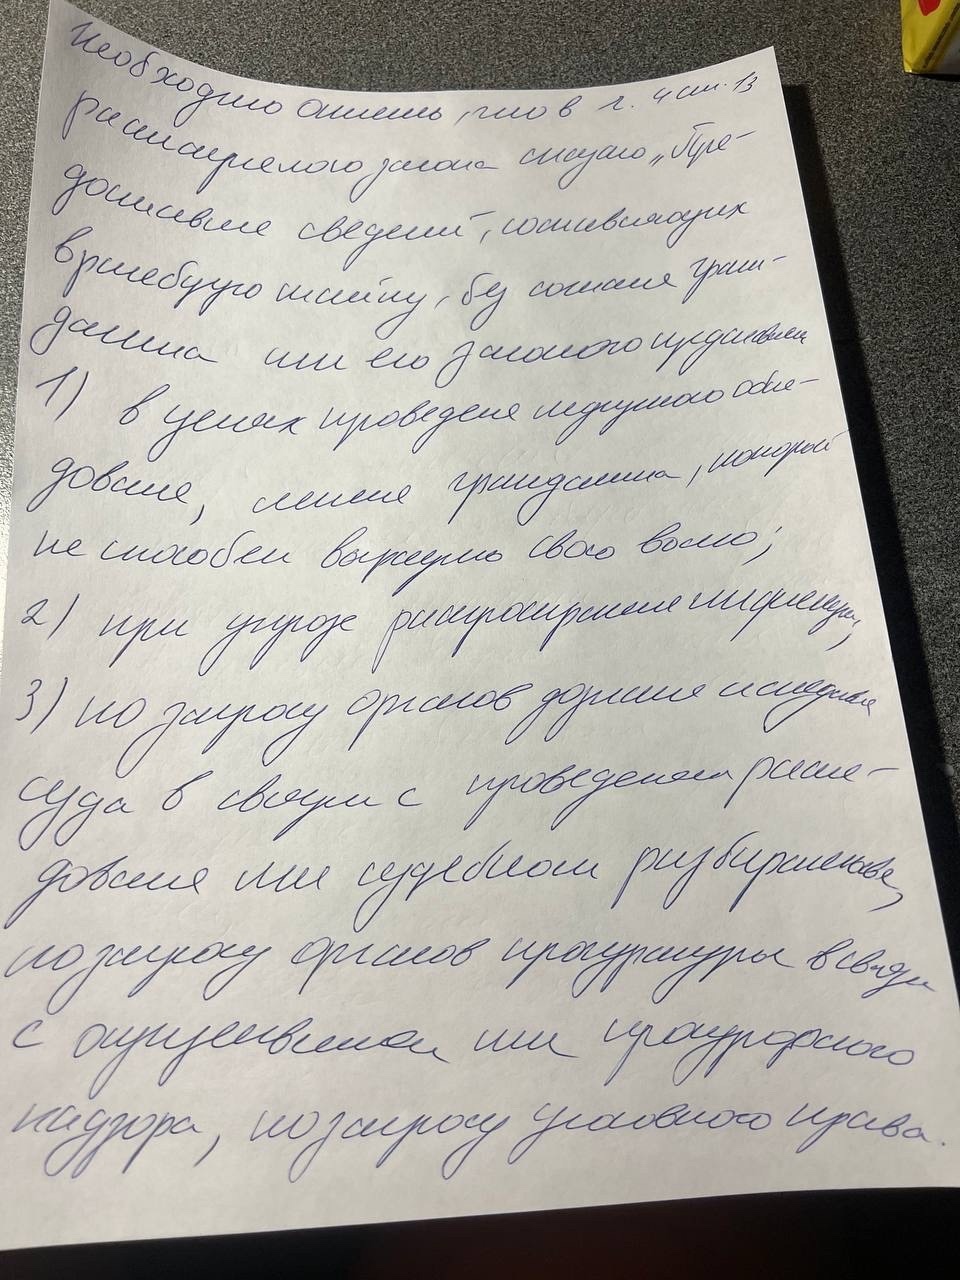 Необходимо отметить, что в ч. 4 ст. 13
рассматриваемого закона сказано „Пре-
доставление сведений, составляющих
врачебную тайну, без согласия граж-
данина или его законного представителя
1) в целях проведения медицинского обсле-
дования, лечения гражданина, который
не способен выразить свою волю;
2) при угрозе распространения инфекции,
3) по запросу органов дознания и следствия
суда в связи с проведением рассле-
дования или судебном разбирательстве,
по запросу органов прокуратуры в связи
с осуществлением ими прокурорского
надзора, по запросу уголовного права.